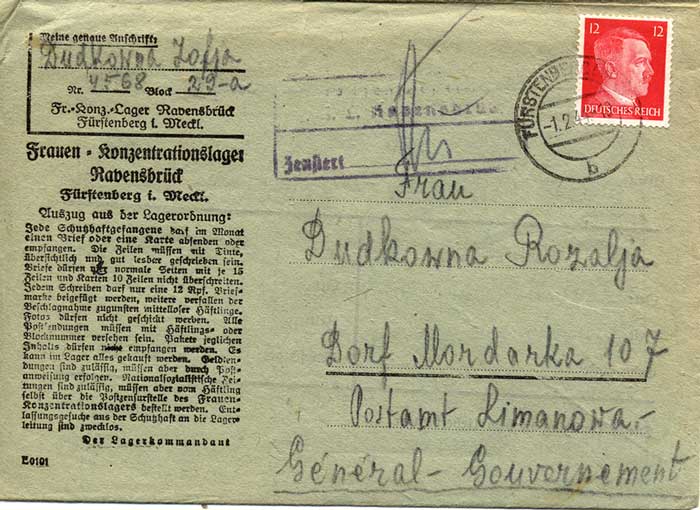 Meine genaue Anschrift:
Dudkowna Zofja
Nr. 4568 Block 29-a
Fr.-Konz.-Lager Ravensbrück
Fürstenberg i. Meckl.
Frauen - Konzentrationslager
Ravensbrück
Fürstenberg i. Meckl.
Auszug aus der Lagerordnung:
Jede Schutzhaftgefangene darf im Monat
einen Brief oder eine Karte absenden oder
empfangen. Die Zeilen müssen mit Tinte,
übersichtlich und gut lesbar geschrieben sein.
Briefe dürfen normale Seiten mit je 15
Zeilen und Karten 10 Zeilen nicht überschreiten.
Jedem Schreiben darf nur eine 12 Rpf. Brief-
marke beigefügt werden, weitere verfallen der
Beschlagnahme zugunsten mittelloser Häftlinge.
Fotos dürfen nicht geschickt werden. Alle
Postsendungen müssen mit Häftlings- oder
Blocknummer versehen sein. Pakete jeglichen
Inhalts dürfen empfangen werden. Es
kann im Lager alles gekauft werden. Geldsen-
dungen sind zulässig, müssen aber durch Post-
anweisung erfolgen. Nationalsozialistische Zei-
tungen sind zulässig, müssen aber vom Häftling
selbst über die Postzensurstelle des Frauen-
Konzentrationslagers bestellt werden. Ent-
lassungsgesuche aus der Schutzhaft an die Lager-
leitung sind zwecklos.
Der Lagerkommandant
E0101
Zensiert
12 12
DEUTSCHES REICH
FÜRSTENBERG
-1.2.4
b
Frau
Dudkowna Rozalja
Dorf Mordarka 107
Postamt Limanowa.-
Général-Gouvernement